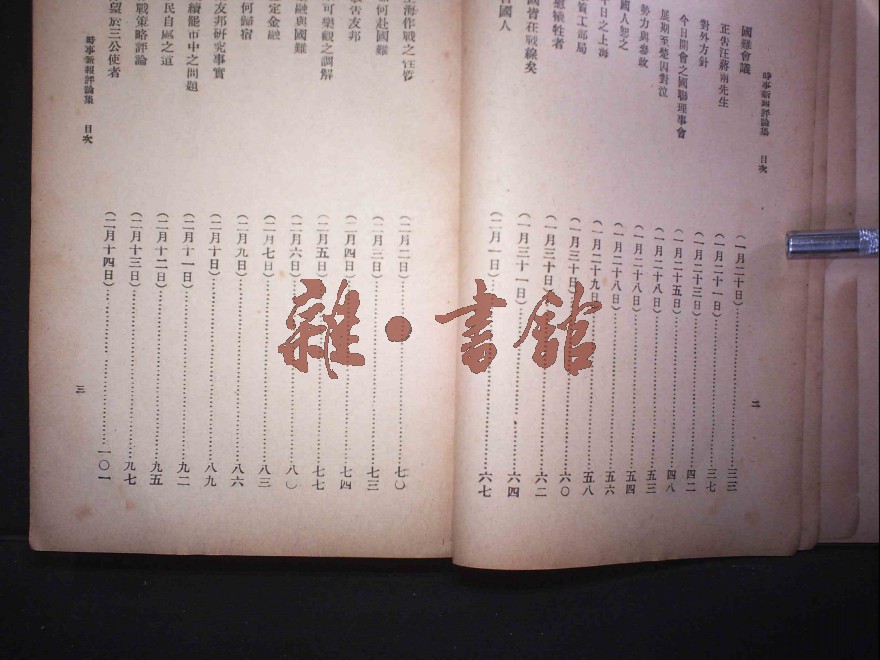 時事新報評論集 目次 二
國難會議 (一月二十日)……三三
正告汪蔣兩先生 (一月二十一日)……三七
對外方針 (一月二十三日)……四二
今日開會之國聯理事會 (一月二十五日)……四八
展期至楚囚對泣 (一月二十八日)……五三
勢力與參政 (一月二十八日)……五四
國人恕之 (一月二十八日)……五六
十日之上海 (一月二十九日)……五八
工部局 (一月三十日)……六〇
慰犧牲者 (一月三十日)……六二
國皆在戰線矣 (一月三十一日)……六四
國人 (二月一日)……六七
上海作戰之任務 (二月二日)……七〇
何赴國難 (二月三日)……七三
告友邦 (二月四日)……七四
可樂觀之調解 (二月五日)……七七
融與國難 (二月六日)……八〇
定金融 (二月七日)……八三
何歸宿 (二月九日)……八六
友邦研究事實 (二月十日)……八九
續罷市中之問題 (二月十一日)……九二
民自處之道 (二月十二日)……九五
戰策略評論 (二月十三日)……九七
望於三公使者 (二月十四日)……一〇一
時事新報評論集 目次 三
雜·書館